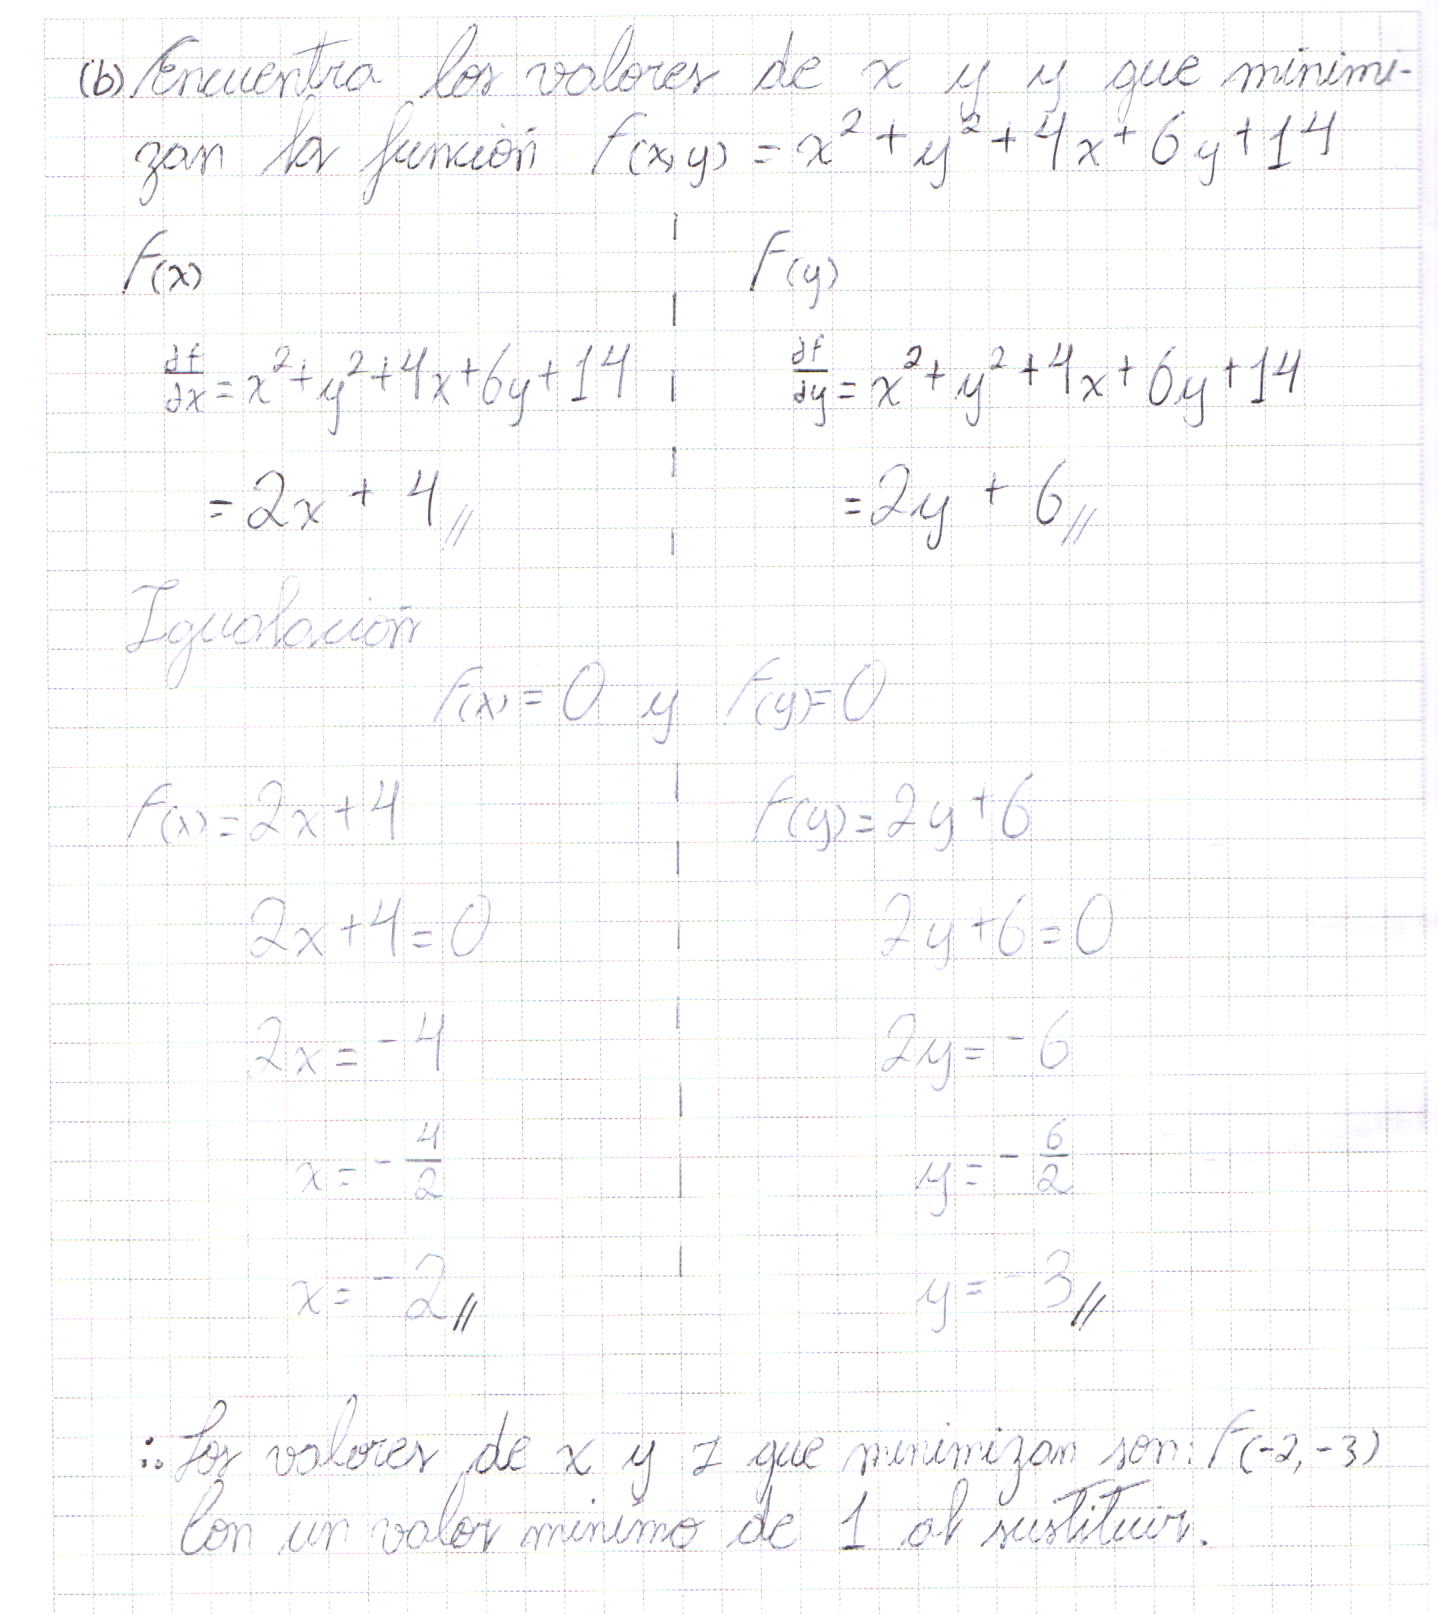 (b) Encuentra los valores de x y y que minimi-
zan la función f(x,y) = x² + y² + 4x + 6y + 14
f(x)
f(y)
∂f/∂x = x² + y² + 4x + 6y + 14
= 2x + 4 //
∂f/∂y = x² + y² + 4x + 6y + 14
= 2y + 6 //
Igualación
f(x) = 0 y f(y) = 0
f(x) = 2x + 4
2x + 4 = 0
2x = -4
x = - 4/2
x = -2 //
f(y) = 2y + 6
2y + 6 = 0
2y = -6
y = - 6/2
y = -3 //
∴ Los valores de x y z que minimizan son: f(-2, -3)
Con un valor minimo de 1 al sustituir.